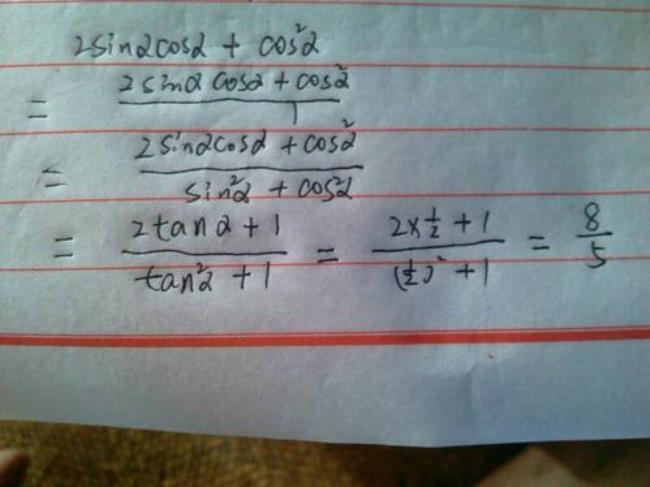 2sinαcosα + cos²α
= (2sinα cosα + cos²α)/1
= (2sinαcosα + cos²α)/(sin²α + cos²α)
= (2tanα + 1)/(tan²α + 1) = (2×½ + 1)/((½)² + 1) = 8/5